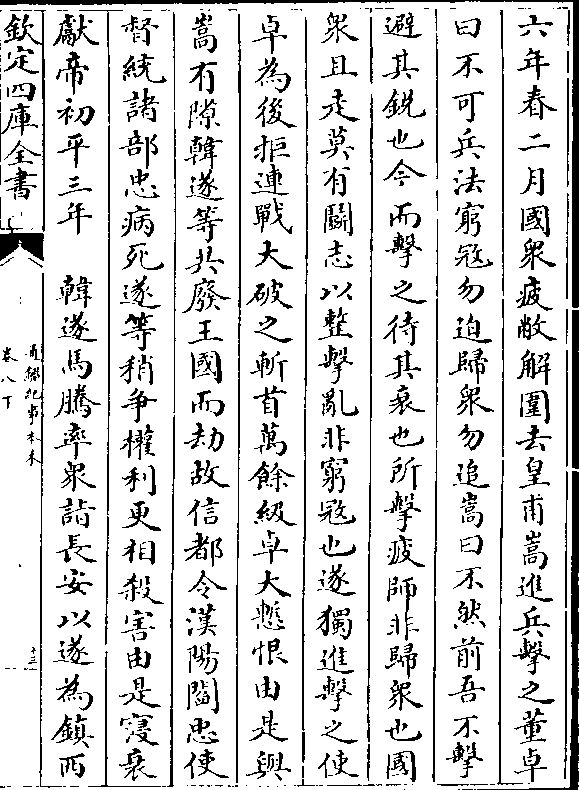 六年春二月國衆疲敝解圍去皇甫嵩進兵擊之董卓
曰不可兵法窮寇勿迫歸衆勿追嵩曰不然前吾不擊
避其銳也今而擊之待其衰也所擊疲師非歸衆也國
衆且走莫有鬬志以整擊亂非窮寇也遂獨進擊之使
卓為後拒連戰大破之斬首萬餘級卓大慙恨由是與
嵩有隙韓遂等共廢王國而劫故信都令漢陽閻忠使
督統諸部忠病死遂等稍爭權利更相殺害由是寖衰
獻帝初平三年　韓遂馬騰率衆詣長安以遂為鎮西
欽定四庫全書
通鑑紀事本末
卷八下
十三